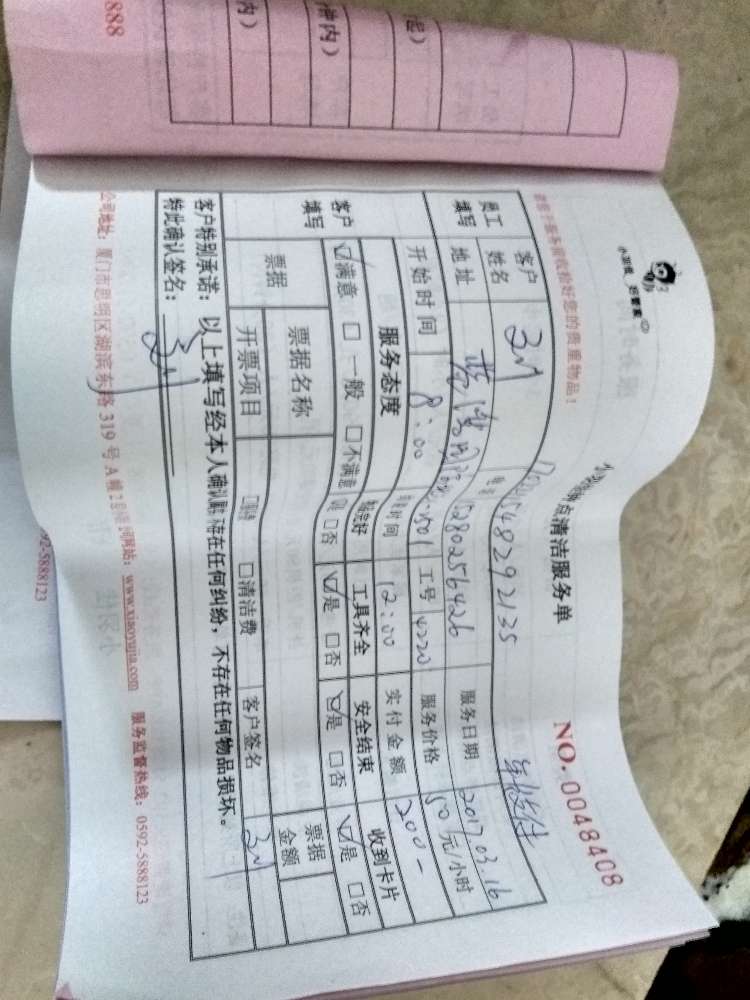 888
NO. 0048408
点清洁服务单
服务前请收检好您的贵重物品！
员工填写
客户姓名 3M
服务日期 2017.03.16
地址
15280256426
工号 4220
服务价格 50元/小时
开始时间 8:00
时间 12:00
实付金额 200-
客户填写
服务态度
工具齐全
安全结束
收到卡片
☑满意 □一般 □不满意
□否
☑是 □否
☑是 □否
☑是 □否
票据
票据名称
票据金额
开票项目
□清洁费
客户签名 3M
客户特别承诺：以上填写经本人确认
存在任何纠纷，不存在任何物品损坏。
特此确认签名： 3M
公司地址：厦门市思明区湖滨东路 319 号 A 幢 2
网站：www.xiaoyujia.com
服务监督热线：0592-5888123
0592-5888123